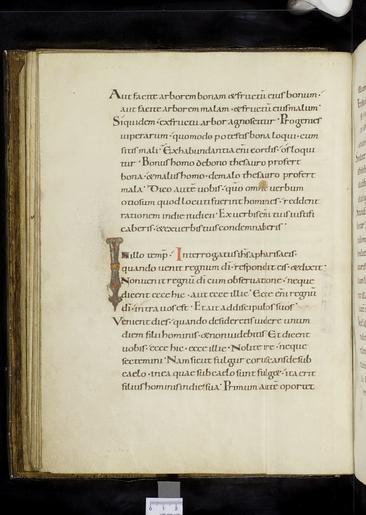 Aut facite arborem bonam & fructū eius bonum·
aut facite arborem malam· & fructū eius malum·
Siquidem· ex fructu arbor agnoscitur· Progenies
uiperarum· quomodo potestis bona loqui· cum
sitis mali· Ex habundantia enī cordis· os loqui
tur· Bonus homo de bono thesauro profert
bona· & malus homo· de malo thesauro profert
mala· Dico autē uobis· qm̄ omne uerbum
otiosum quod locuti fuerint homines· reddent
rationem in die iudicii· Ex uerbis enī tuis iustifi
caberis· & ex uerbis tuis condemnaberis·
In illo temp̄· Interrogatus ihs̄ a pharisaeis·
quando uenit regnum dī· respondit eis· & dixit·
Non uenit regnū dī cum obseruatione· neque
dicent ecce hic· aut ecce illic· Ecce enī regnū
dī· intra uos est· Et ait ad discipulos suos·
Venient dies· quando desideretis uidere unum
diem filii hominis· & non uidebitis· Et dicent
uobis· ecce hic· ecce illic· Nolite ire· neque
sectemini· Nam sicut fulgur coruscans de sub
caelo· in ea quae sub caelo sunt fulg&· ita erit
filius hominis in die sua· Primum autē oport&